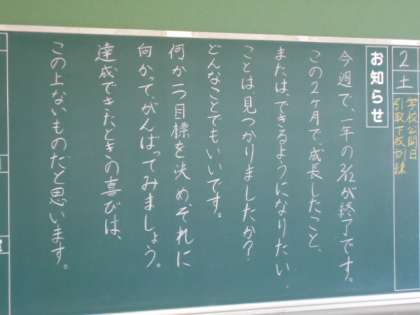 2
土
学校公開日
引取下校訓練
お知らせ
今週で、一年の
が終了です。
この2ヶ月で、成長したこと、
または、できるようになりたい
ことは見つかりましたか?
どんなことでもいいです。
何か一つ目標を決めそれに
向かってがんばってみましょう。
達成できたときの喜びは、
この上ないものだと思います。